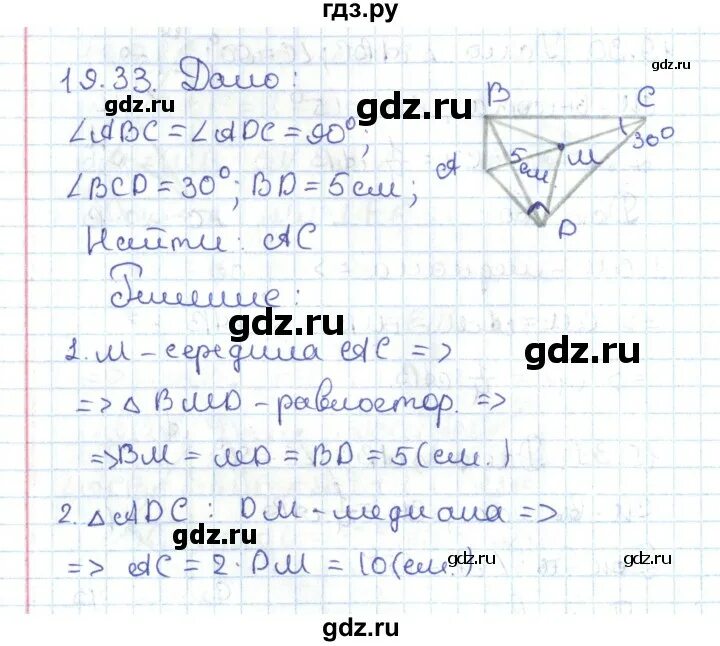 гдз.ру
19.33. Дано:
gdz.ru
gdz.ru
gdz.ru
∠ABC = ∠ADC = 90°;
∠BCD = 30°; BD = 5 см;
gdz.ru
Найти: AC
Решение:
B
C
30°
A
5 см
M
D
gdz.ru
1. M - середина AC =>
gdz.ru
=> △ BMD - равностор. =>
gdz.ru
=> BM = MD = BD = 5 (см.)
2. △ ADC: DM - медиана =>
gdz.ru
=> AC = 2·DM = 10 (см.)
gdz.ru
gdz.ru
gdz.ru
gdz.ru